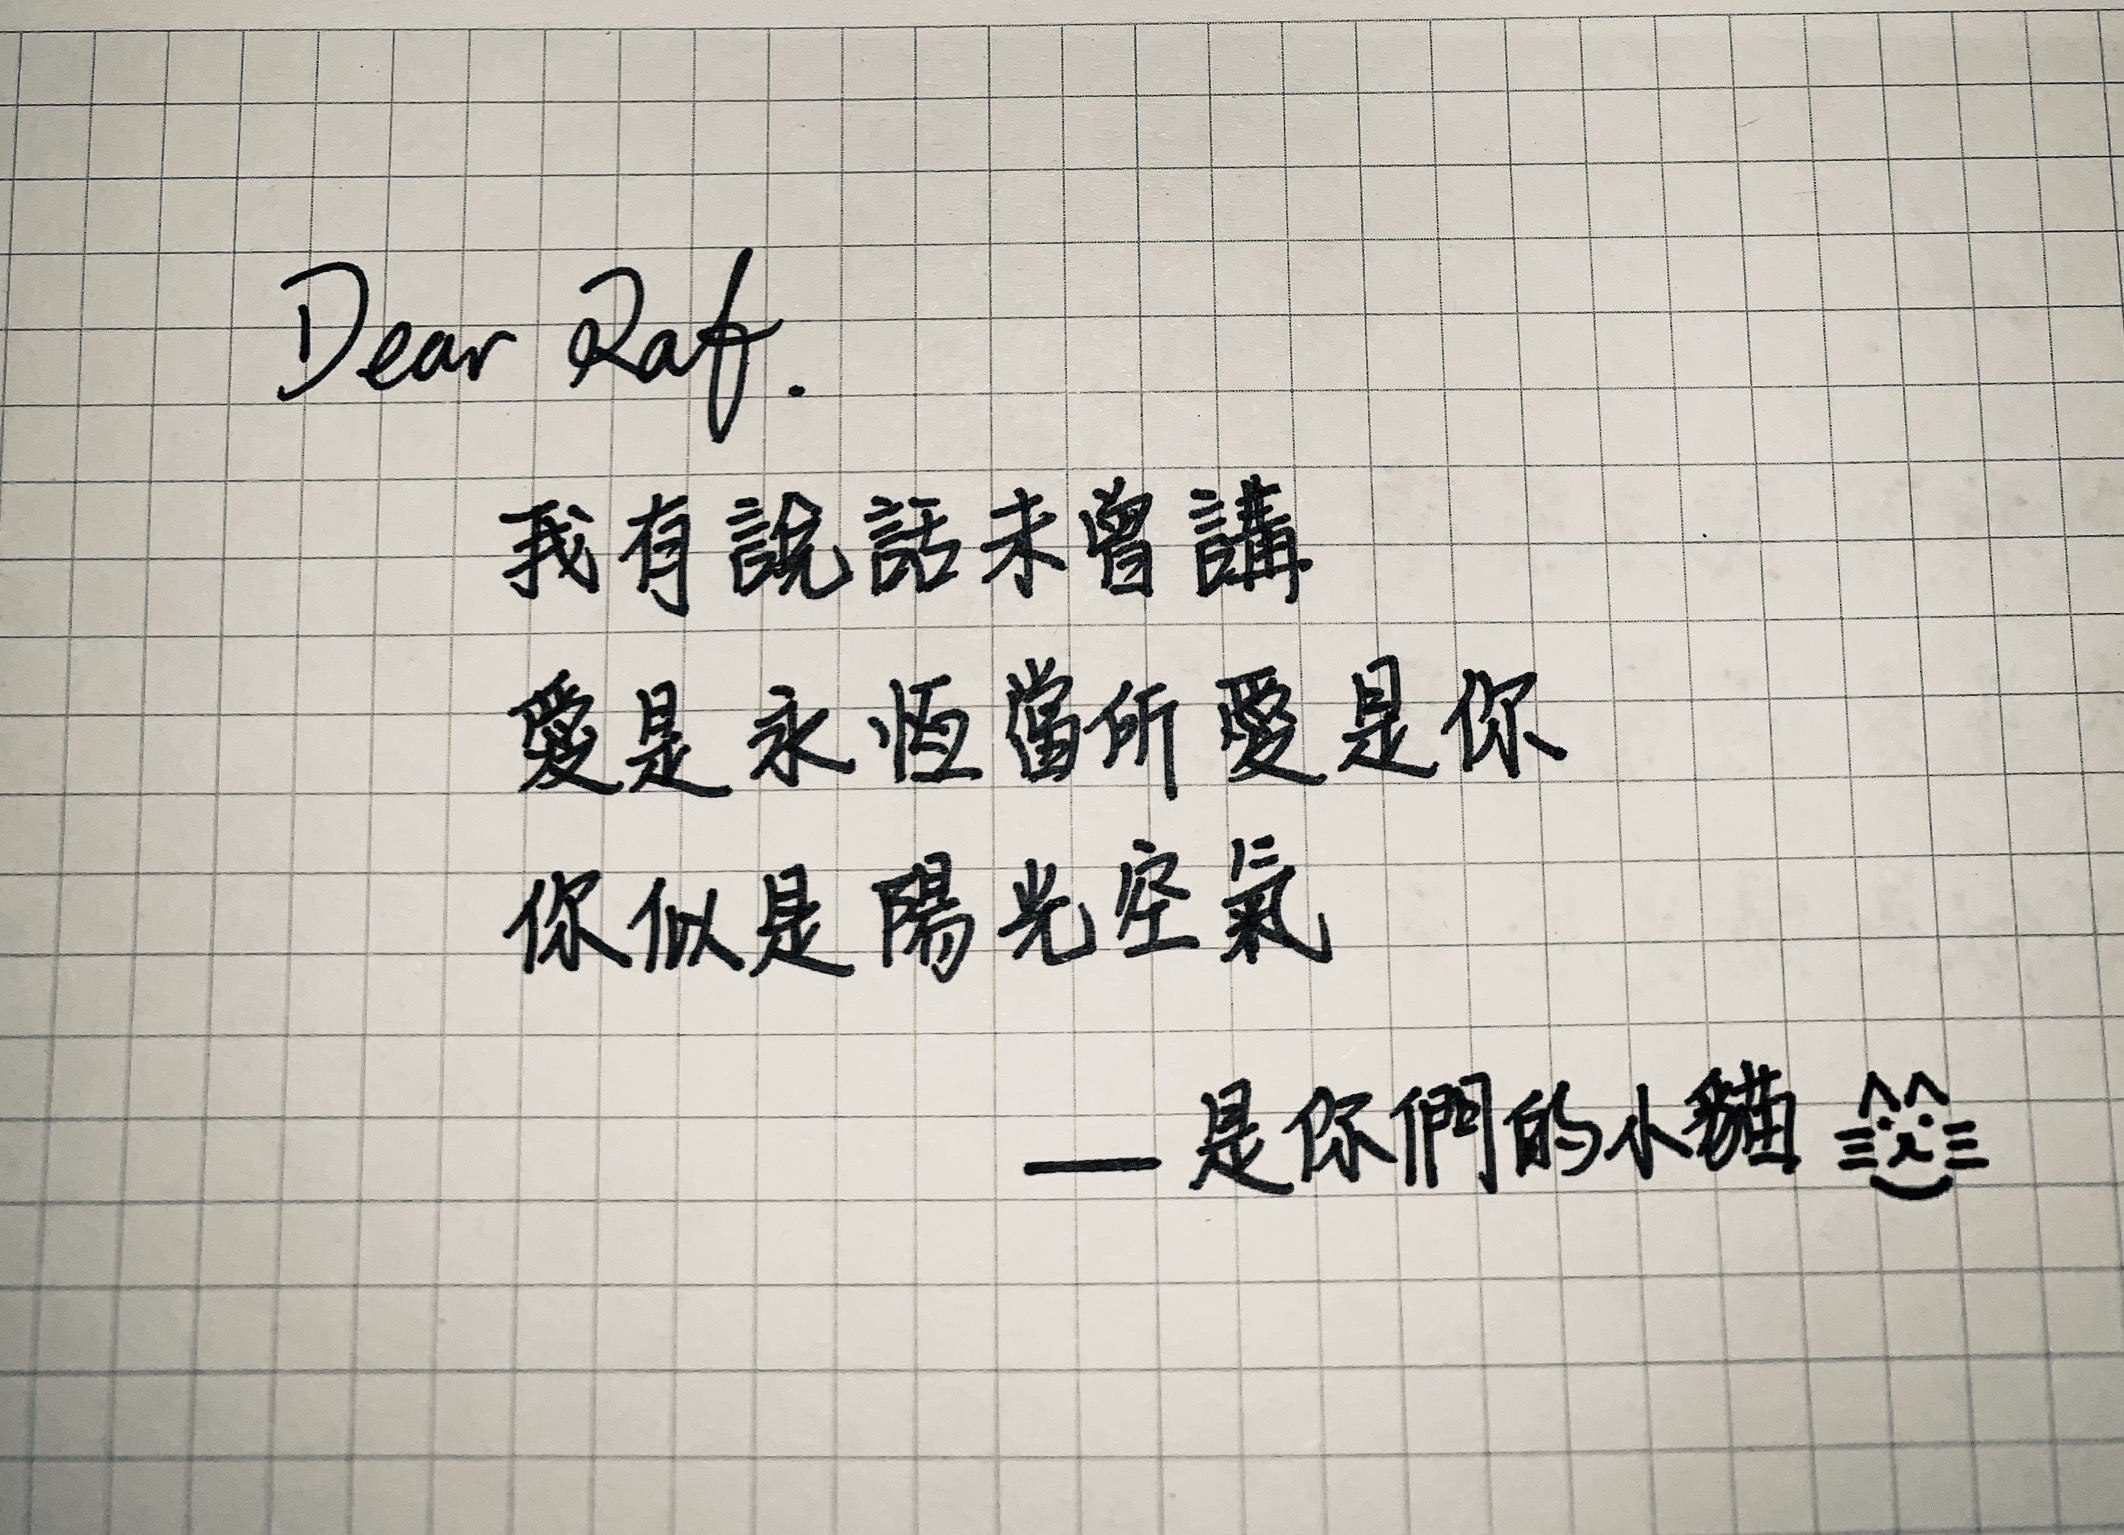 Dear Raf.
我有說話未曾講
愛是永恆當所愛是你
你似是陽光空氣
— 是你們的小貓